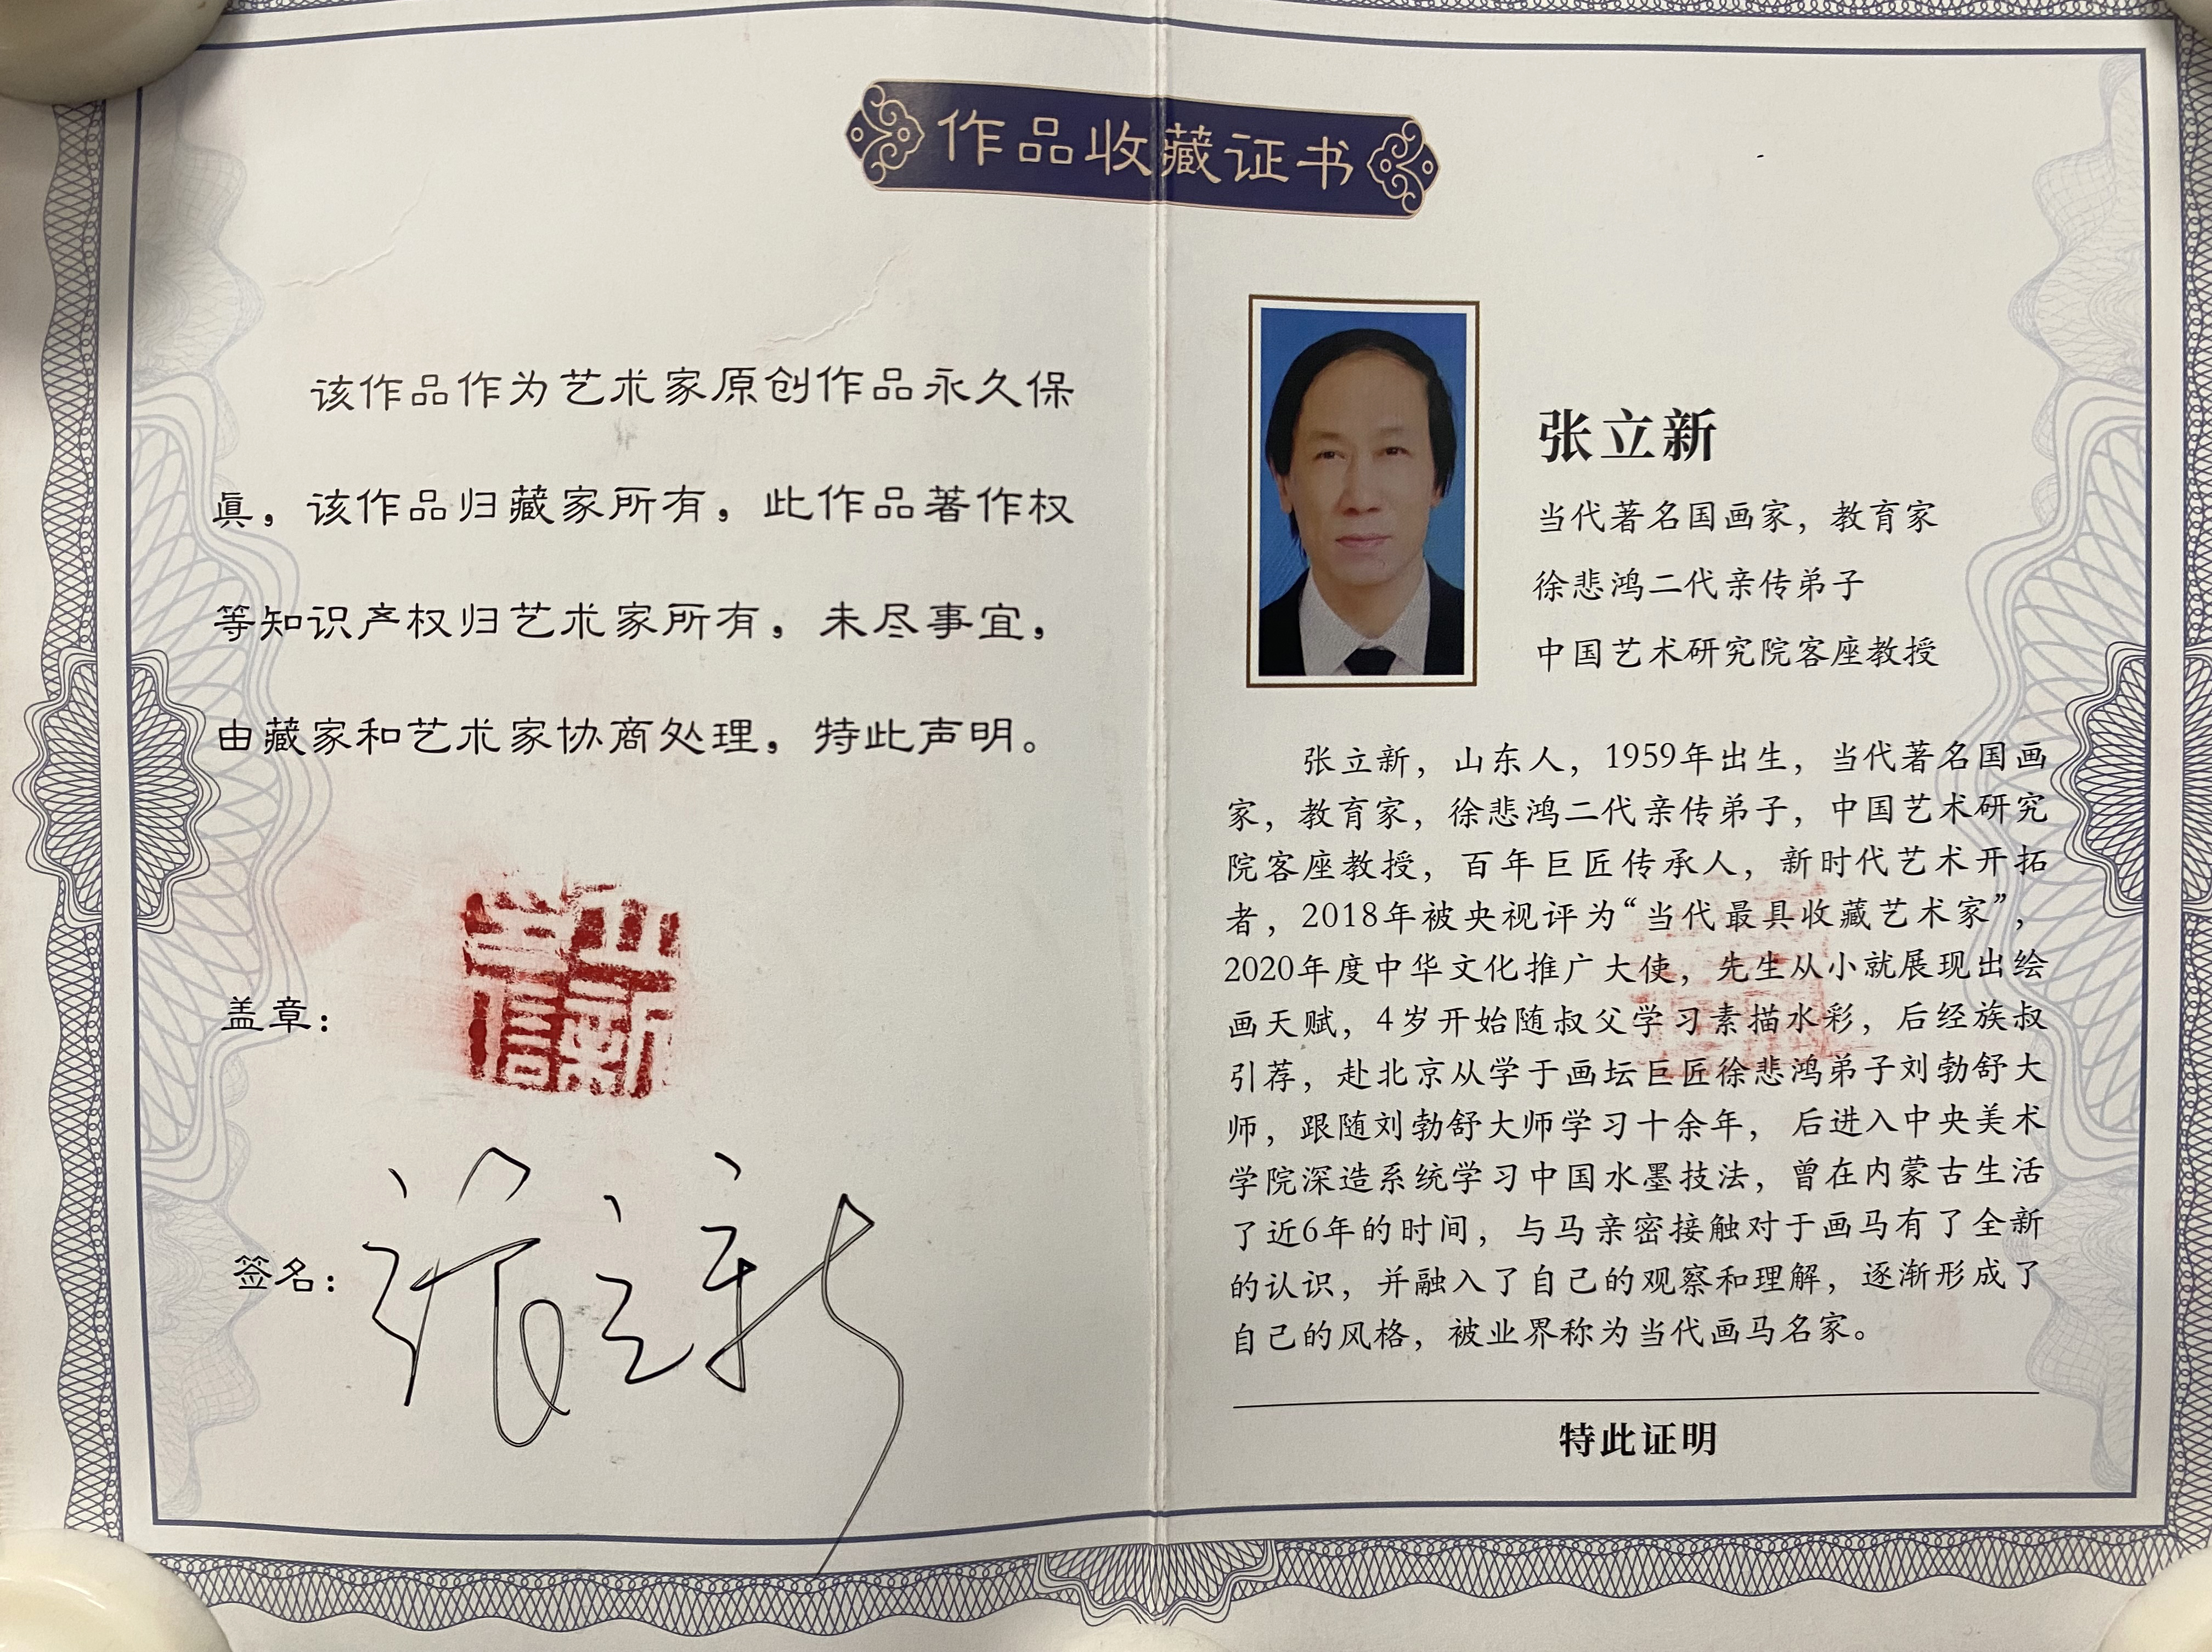 作品收藏证书
该作品作为艺术家原创作品永久保
眞，该作品归藏家所有，此作品著作权
等知识产权归艺术家所有，未尽事宜，
由藏家和艺术家协商处理，特此声明。
盖章：
签名：张立新
张立新
当代著名国画家，教育家
徐悲鸿二代亲传弟子
中国艺术研究院客座教授
张立新，山东人，1959年出生，当代著名国画
家，教育家，徐悲鸿二代亲传弟子，中国艺术研究
院客座教授，百年巨匠传承人，新时代艺术开拓
者，2018年被央视评为“当代最具收藏艺术家”，
2020年度中华文化推广大使，先生从小就展现出绘
画天赋，4岁开始随叔父学习素描水彩，后经族叔
引荐，赴北京从学于画坛巨匠徐悲鸿弟子刘勃舒大
师，跟随刘勃舒大师学习十余年，后进入中央美术
学院深造系统学习中国水墨技法，曾在内蒙古生活
了近6年的时间，与马亲密接触对于画马有了全新
的认识，并融入了自己的观察和理解，逐渐形成了
自己的风格，被业界称为当代画马名家。
特此证明